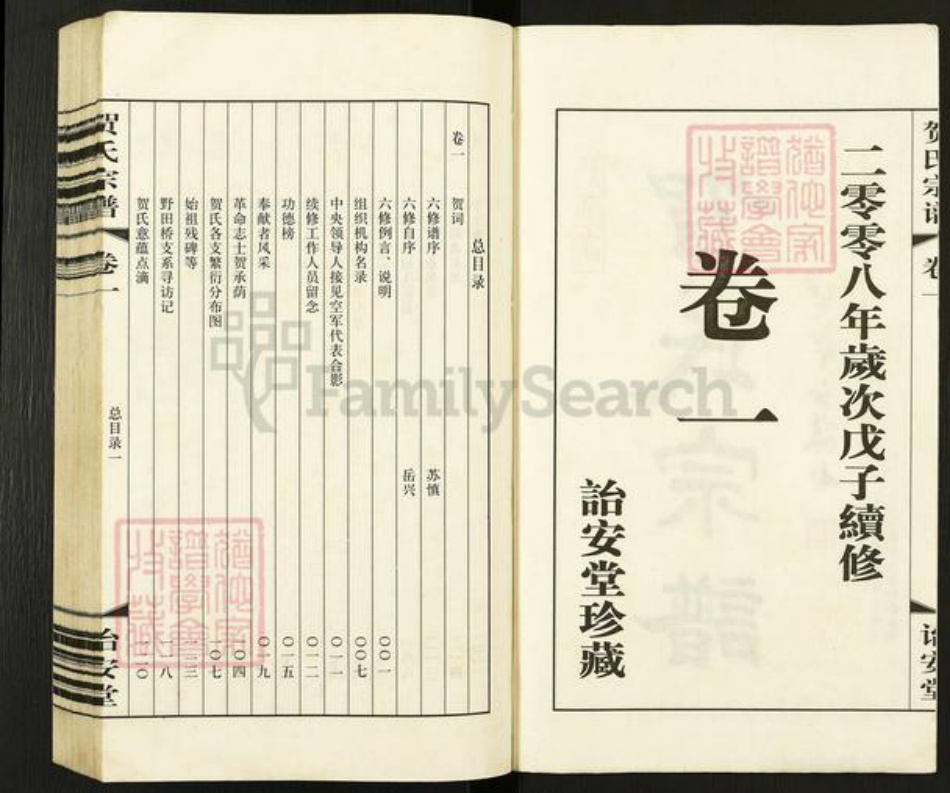 贺氏宗谱 卷一
诒安堂
二零零八年歲次戊子續修
卷一
詒安堂珍藏
總譜學會
收藏
FamilySearch
总目录
卷一
贺词
六修谱序 苏慎
六修自序 岳兴
六修例言、说明 〇〇一
组织机构名录 〇〇七
中央领导人接见空军代表合影 〇一一
续修工作人员留念 〇一二
功德榜 〇一五
奉献者风采 〇一九
革命志士贺承荫 一〇四
贺氏各支繁衍分布图 一〇七
始祖残碑等 一一三
野田桥支系寻访记 一一八
贺氏意蕴点滴 一二〇
贺氏宗谱 卷一
总目录一
诒安堂